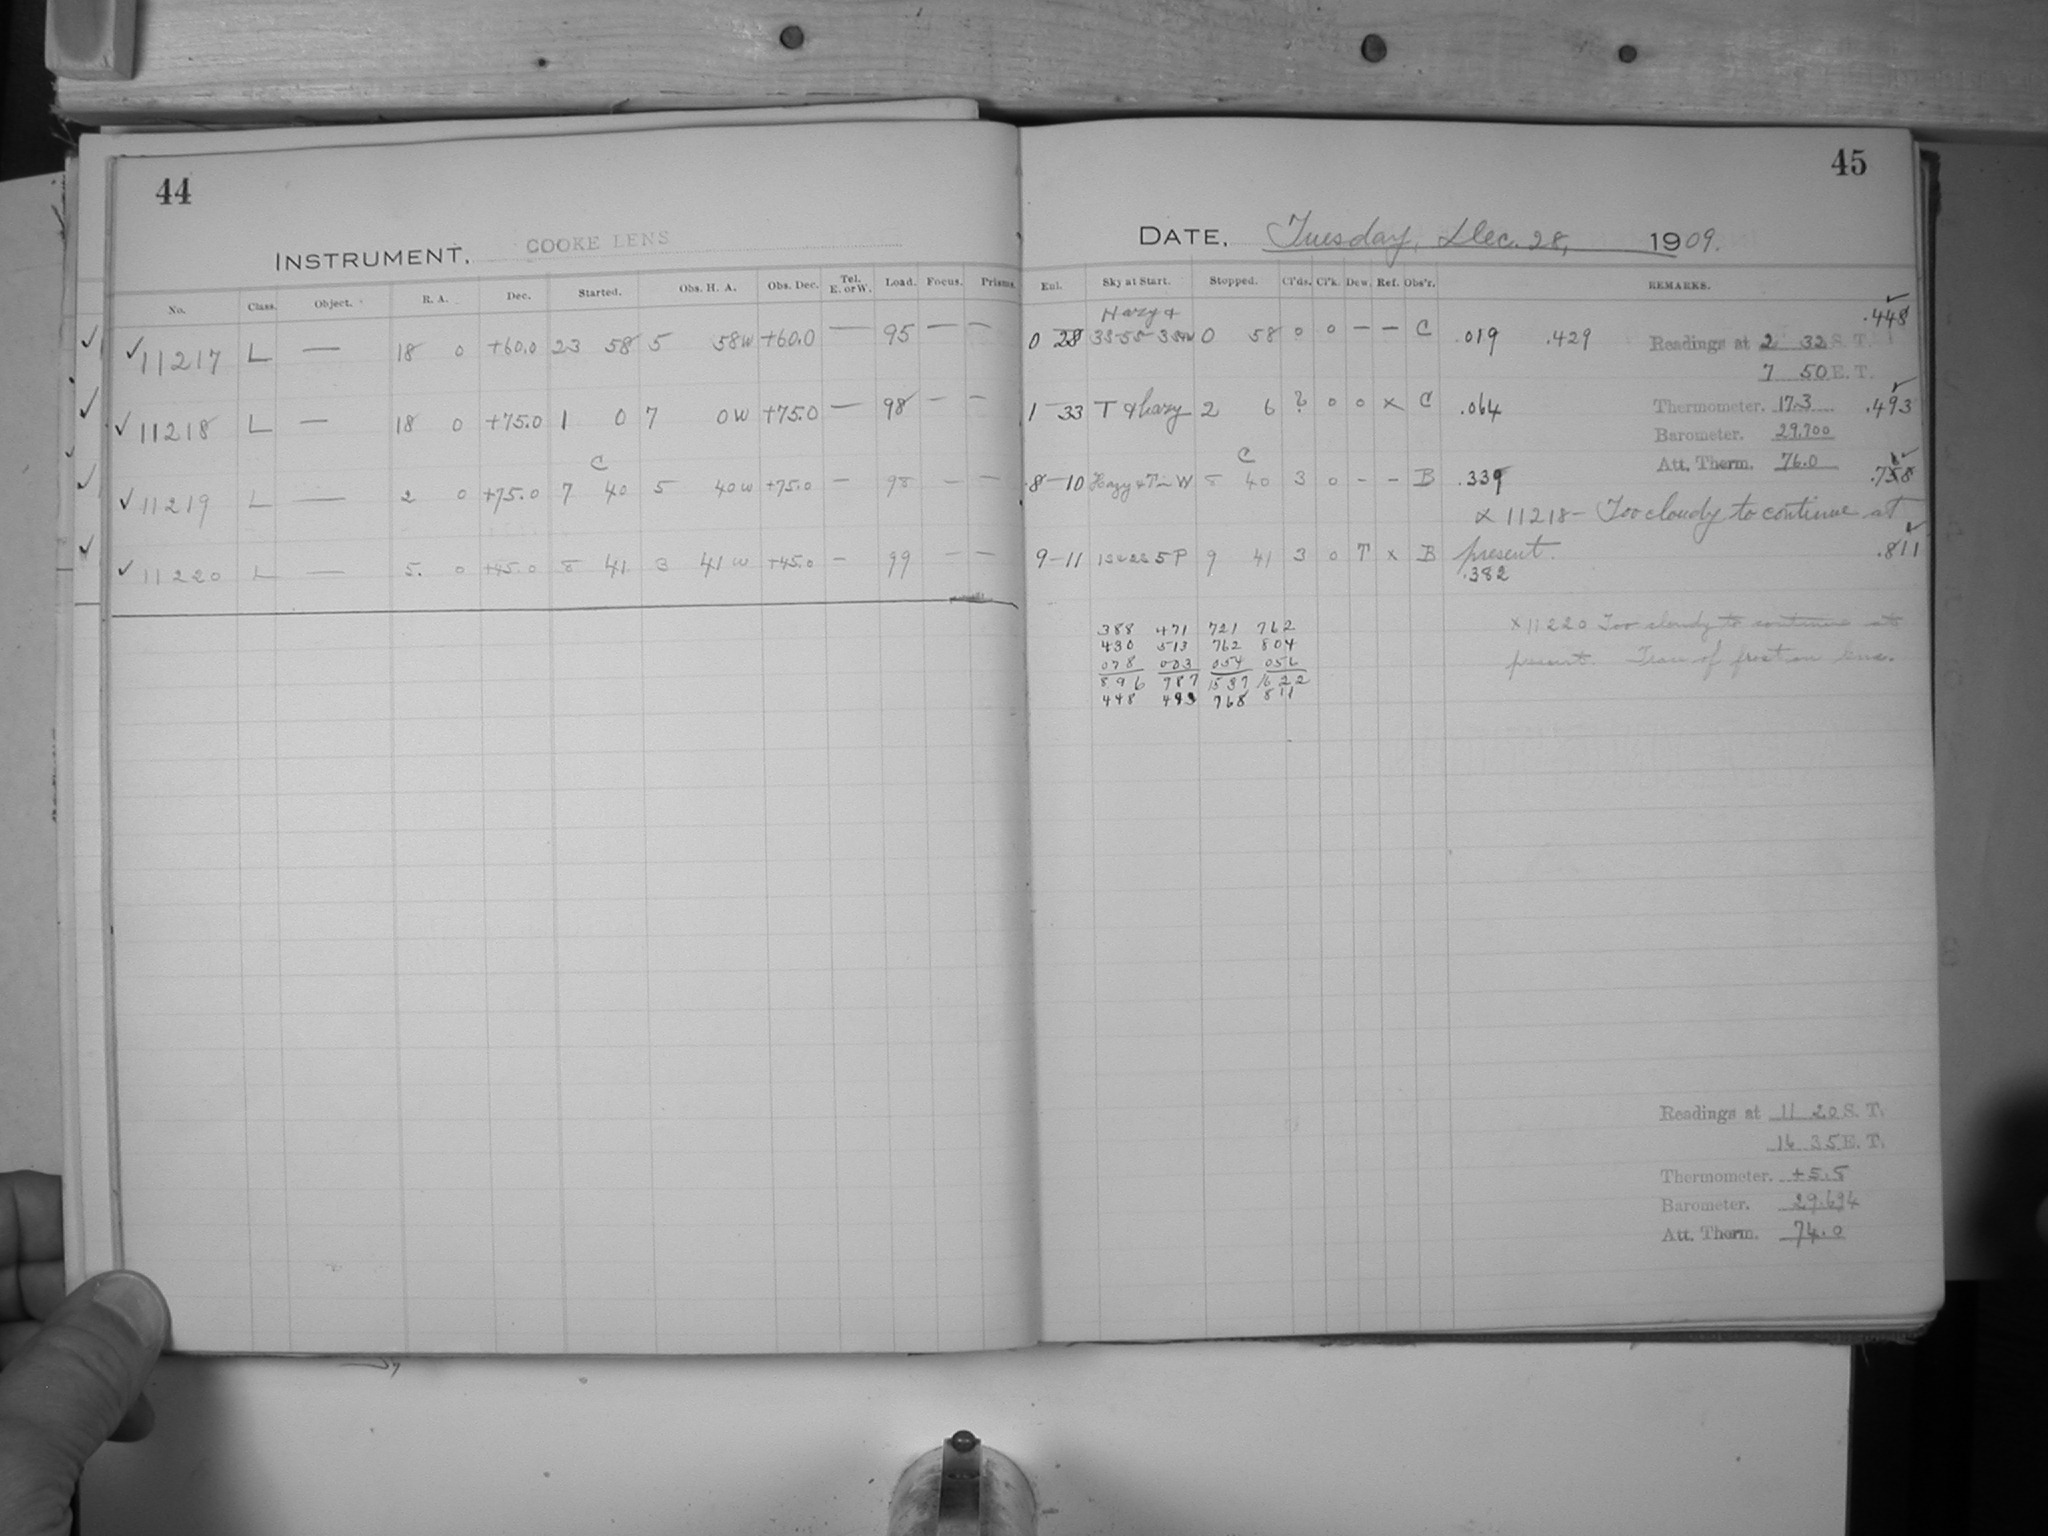 44
INSTRUMENT, COOKE LENS
No. Class. Object. R. A. Dec. Started. Obs. H. A. Obs. Dec. Tel. E. or W. Load. Focus. Prisms.
✓ ✓ 11217 L — 18 0 +60.0 23 58 5 58W +60.0 — 95 — —
✓ ✓ 11218 L — 18 0 +75.0 1 0 7 0W +75.0 — 98 — —
C
✓ ✓ 11219 L — 2 0 +75.0 7 40 5 40W +75.0 — 98 — —
✓ ✓ 11220 L — 5. 0 +45.0 8 41 3 41W +45.0 — 99 — —
45
DATE, Tuesday, Dec. 28, 1909.
Eul. Sky at Start. Stopped. Cl'ds. Cl'k. Dew. Ref. Obs'r. REMARKS.
Hazy &
0 28 0 58 0 0 — — C .019 .429 .448
Readings at 2 32 S. T.
7 50 E. T.
1 33 T & hazy 2 6 ? 0 0 x C .064 .493
Thermometer. 17.3
Barometer. 29.700
Att. Therm. 76.0
C
8-10 Hazy & T in W 8 40 3 0 - - B .339
x 11218 - Too cloudy to continue at
present.
9-11 9 41 3 0 T x B .382 .811
388 471 721 762
430 513 762 804
078 003 054 056
896 787 1537 1622
448 493 768 811
x 11220 Too cloudy to continue at
present. Trace of frost on lens.
Readings at 11 20 S. T.
16 35 E. T.
Thermometer. +5.5
Barometer. 29.694
Att. Therm. 74.0